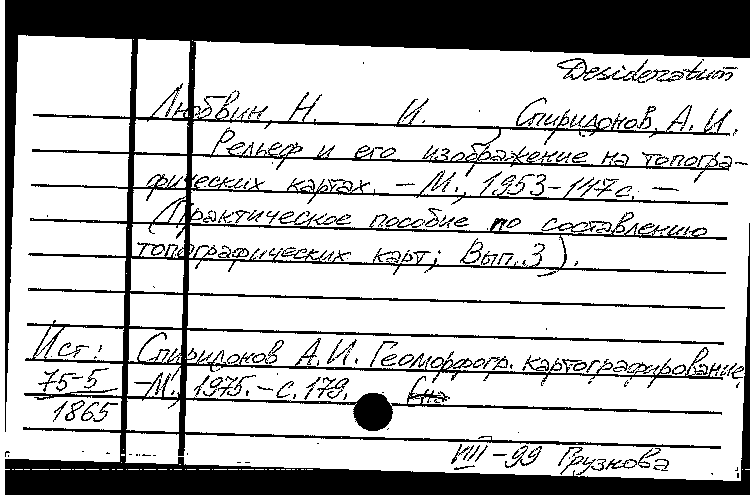 Desideratum
Любвин, Н. И. , Спиридонов, А. И.
Рельеф и его изображение на топогра-
фических картах. - М., 1953-147 с. -
(Практическое пособие по составлению
топографических карт; Вып. 3).
Ист: Спиридонов А. И. Геоморфогр. картографирование,
75-5 -М., 1975. - с. 179.
1865
VIII-99 Грузнова